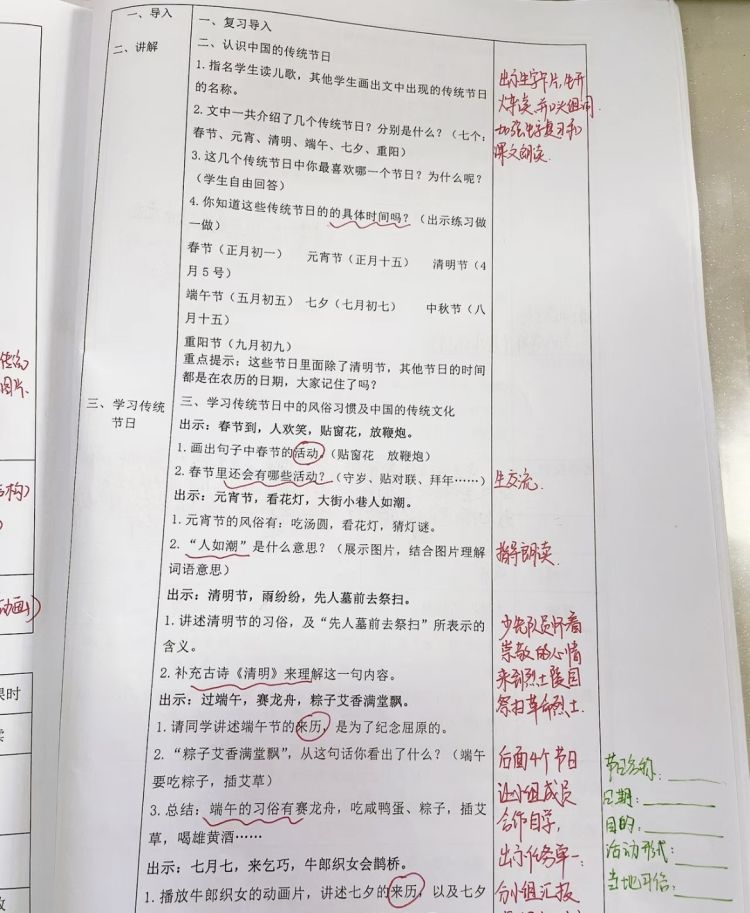 一、导入
一、复习导入
二、讲解
二、认识中国的传统节日
1.指名学生读儿歌，其他学生画出文中出现的传统节日
的名称。
2.文中一共介绍了几个传统节日？分别是什么？（七个：
春节、元宵、清明、端午、七夕、重阳）
3.这几个传统节日中你最喜欢哪一个节日？为什么呢？
（学生自由回答）
4.你知道这些传统节日的的具体时间吗？（出示练习做
一做）
春节（正月初一） 元宵节（正月十五） 清明节（4
月5号）
端午节（五月初五） 七夕（七月初七） 中秋节（八
月十五）
重阳节（九月初九）
重点提示：这些节日里面除了清明节，其他节日的时间
都是在农历的日期，大家记住了吗？
三、学习传统
节日
三、学习传统节日中的风俗习惯及中国的传统文化
出示：春节到，人欢笑，贴窗花，放鞭炮。
1.画出句子中春节的活动。（贴窗花 放鞭炮）
2.春节里还会有哪些活动？（守岁、贴对联、拜年……）
出示：元宵节，看花灯，大街小巷人如潮。
1.元宵节的风俗有：吃汤圆，看花灯，猜灯谜。
2.“人如潮”是什么意思？（展示图片，结合图片理解
词语意思）
出示：清明节，雨纷纷，先人墓前去祭扫。
1.讲述清明节的习俗，及“先人墓前去祭扫”所表示的
含义。
2.补充古诗《清明》来理解这一句内容。
出示：过端午，赛龙舟，粽子艾香满堂飘。
1.请同学讲述端午节的来历，是为了纪念屈原的。
2.“粽子艾香满堂飘”，从这句话你看出了什么？（端午
要吃粽子，插艾草）
3.总结：端午的习俗有赛龙舟，吃咸鸭蛋、粽子，插艾
草，喝雄黄酒……
出示：七月七，来乞巧，牛郎织女会鹊桥。
1.播放牛郎织女的动画片，讲述七夕的来历，以及七夕
出示生字卡片，开
火车读，并口头组词.
加强生字复习和
课文朗读.
生交流.
指导朗读.
少先队员怀着
崇敬的心情
来到烈士陵园
祭扫革命烈士.
后面4个节日
让小组成员
合作自学，
出示任务单：
分小组汇报
节日名称：
日期：
目的：
活动形式：
当地习俗：
图片.
结构）
动画片）
课时